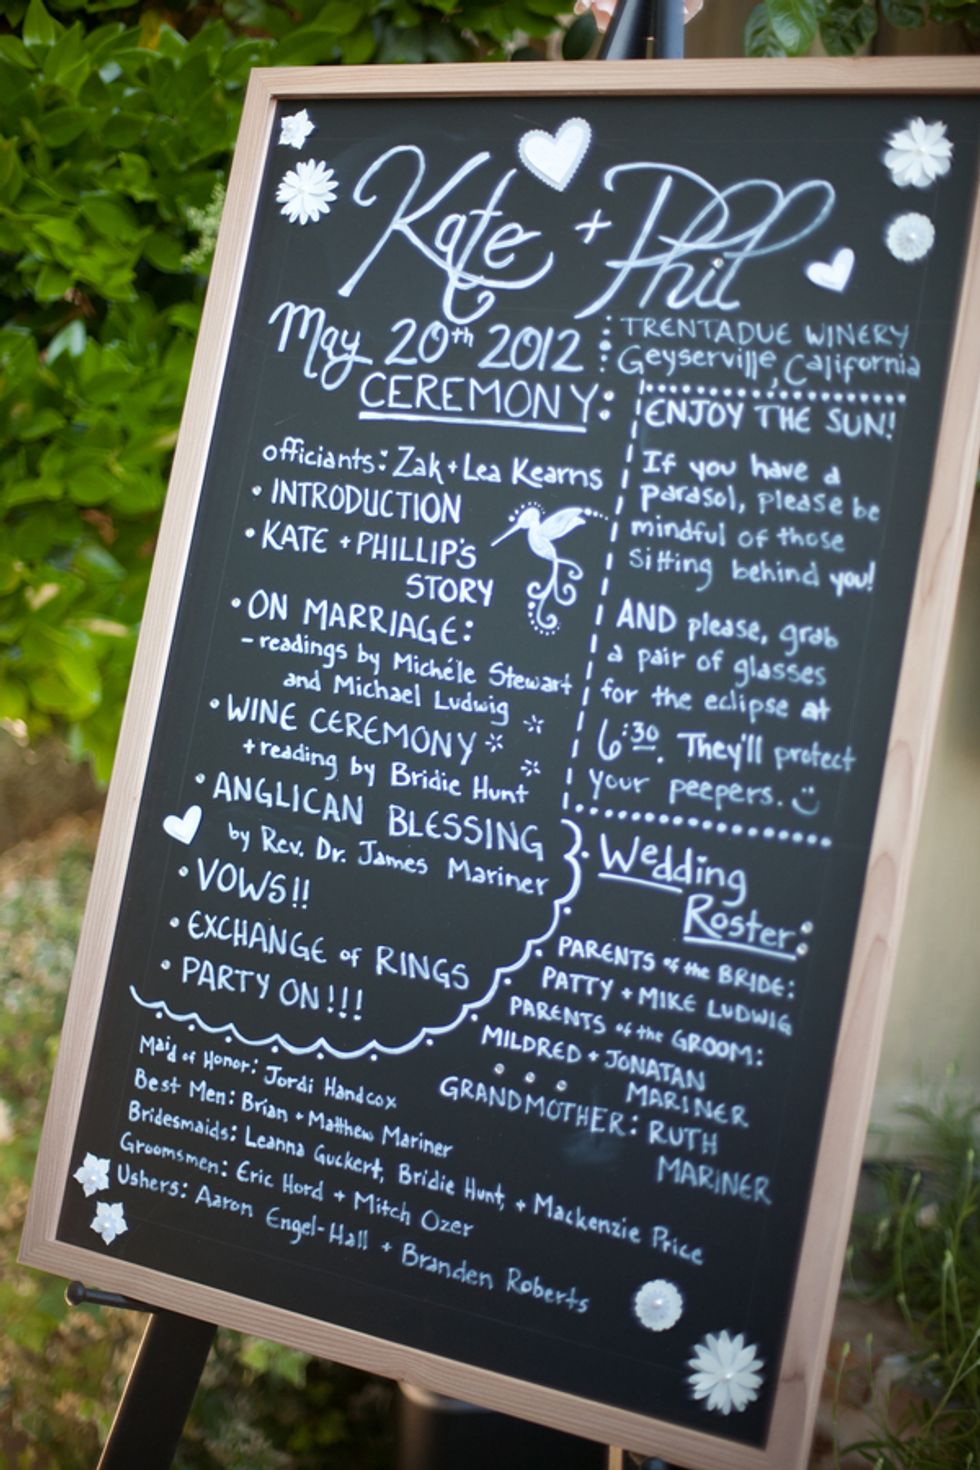 Kate + Phil
May 20th 2012
CEREMONY:
officiants: Zak + Lea Kearns
• INTRODUCTION
• KATE + PHILLIP'S
STORY
• ON MARRIAGE:
- readings by Michéle Stewart
and Michael Ludwig
• WINE CEREMONY
+ reading by Bridie Hunt
• ANGLICAN BLESSING
by Rev. Dr. James Mariner
• VOWS!!
• EXCHANGE of RINGS
• PARTY ON!!!
TRENTADUE WINERY
Geyserville, California
ENJOY THE SUN!
If you have a
parasol, please be
mindful of those
sitting behind you!
AND please, grab
a pair of glasses
for the eclipse at
6:30. They'll protect
your peepers.
Wedding
Roster:
PARENTS of the BRIDE:
PATTY + MIKE LUDWIG
PARENTS of the GROOM:
MILDRED + JONATAN
MARINER
GRANDMOTHER: RUTH
MARINER
Maid of Honor: Jordi Handcox
Best Men: Brian + Matthew Mariner
Bridesmaids: Leanna Guckert, Bridie Hunt, + Mackenzie Price
Groomsmen: Eric Hord + Mitch Ozer
Ushers: Aaron Engel-Hall + Branden Roberts